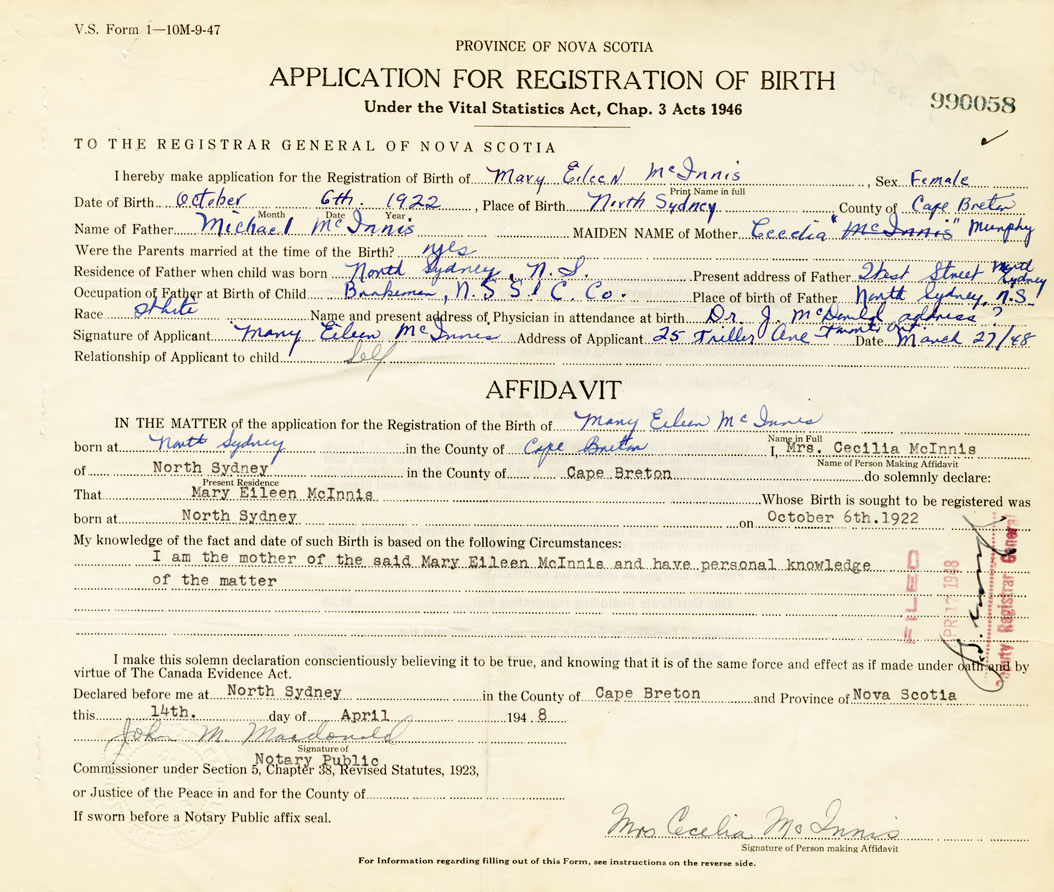 V.S. Form 1—10M-9-47
PROVINCE OF NOVA SCOTIA
APPLICATION FOR REGISTRATION OF BIRTH
Under the Vital Statistics Act, Chap. 3 Acts 1946
990058
TO THE REGISTRAR GENERAL OF NOVA SCOTIA
I hereby make application for the Registration of Birth of Mary Eileen McInnis, Sex Female
Print Name in full
Date of Birth October 6th. 1922, Place of Birth North Sydney County of Cape Breton
Month Date Year
Name of Father Michael McInnis MAIDEN NAME of Mother Cecelia "McInnis" Murphy
Were the Parents married at the time of the Birth? yes
Residence of Father when child was born North Sydney, N.S. Present address of Father West Street North Sydney
Occupation of Father at Birth of Child Brakeman, N.S.S. & C. Co. Place of birth of Father North Sydney, N.S.
Race White Name and present address of Physician in attendance at birth Dr. J. McDonald address?
Signature of Applicant Mary Eileen McInnis Address of Applicant 25 Triller Ave Toronto Ont. Date March 27/48
Relationship of Applicant to child Self
AFFIDAVIT
IN THE MATTER of the application for the Registration of the Birth of Mary Eileen McInnis
Name in Full
born at North Sydney in the County of Cape Breton I, Mrs. Cecilia McInnis
Name of Person Making Affidavit
of North Sydney in the County of Cape Breton do solemnly declare:
Present Residence
That Mary Eileen McInnis Whose Birth is sought to be registered was
born at North Sydney on October 6th.1922
My knowledge of the fact and date of such Birth is based on the following Circumstances:
I am the mother of the said Mary Eileen McInnis and have personal knowledge
of the matter
FILED
APR 17 1948
Deputy Registrar General
I make this solemn declaration conscientiously believing it to be true, and knowing that it is of the same force and effect as if made under oath and by
virtue of The Canada Evidence Act.
Declared before me at North Sydney in the County of Cape Breton and Province of Nova Scotia
this 14th. day of April 1948
John M. Macdonald
Signature of
Notary Public
Commissioner under Section 5, Chapter 38, Revised Statutes, 1923,
or Justice of the Peace in and for the County of
If sworn before a Notary Public affix seal.
Mrs Cecelia McInnis
Signature of Person making Affidavit
For Information regarding filling out of this Form, see instructions on the reverse side.